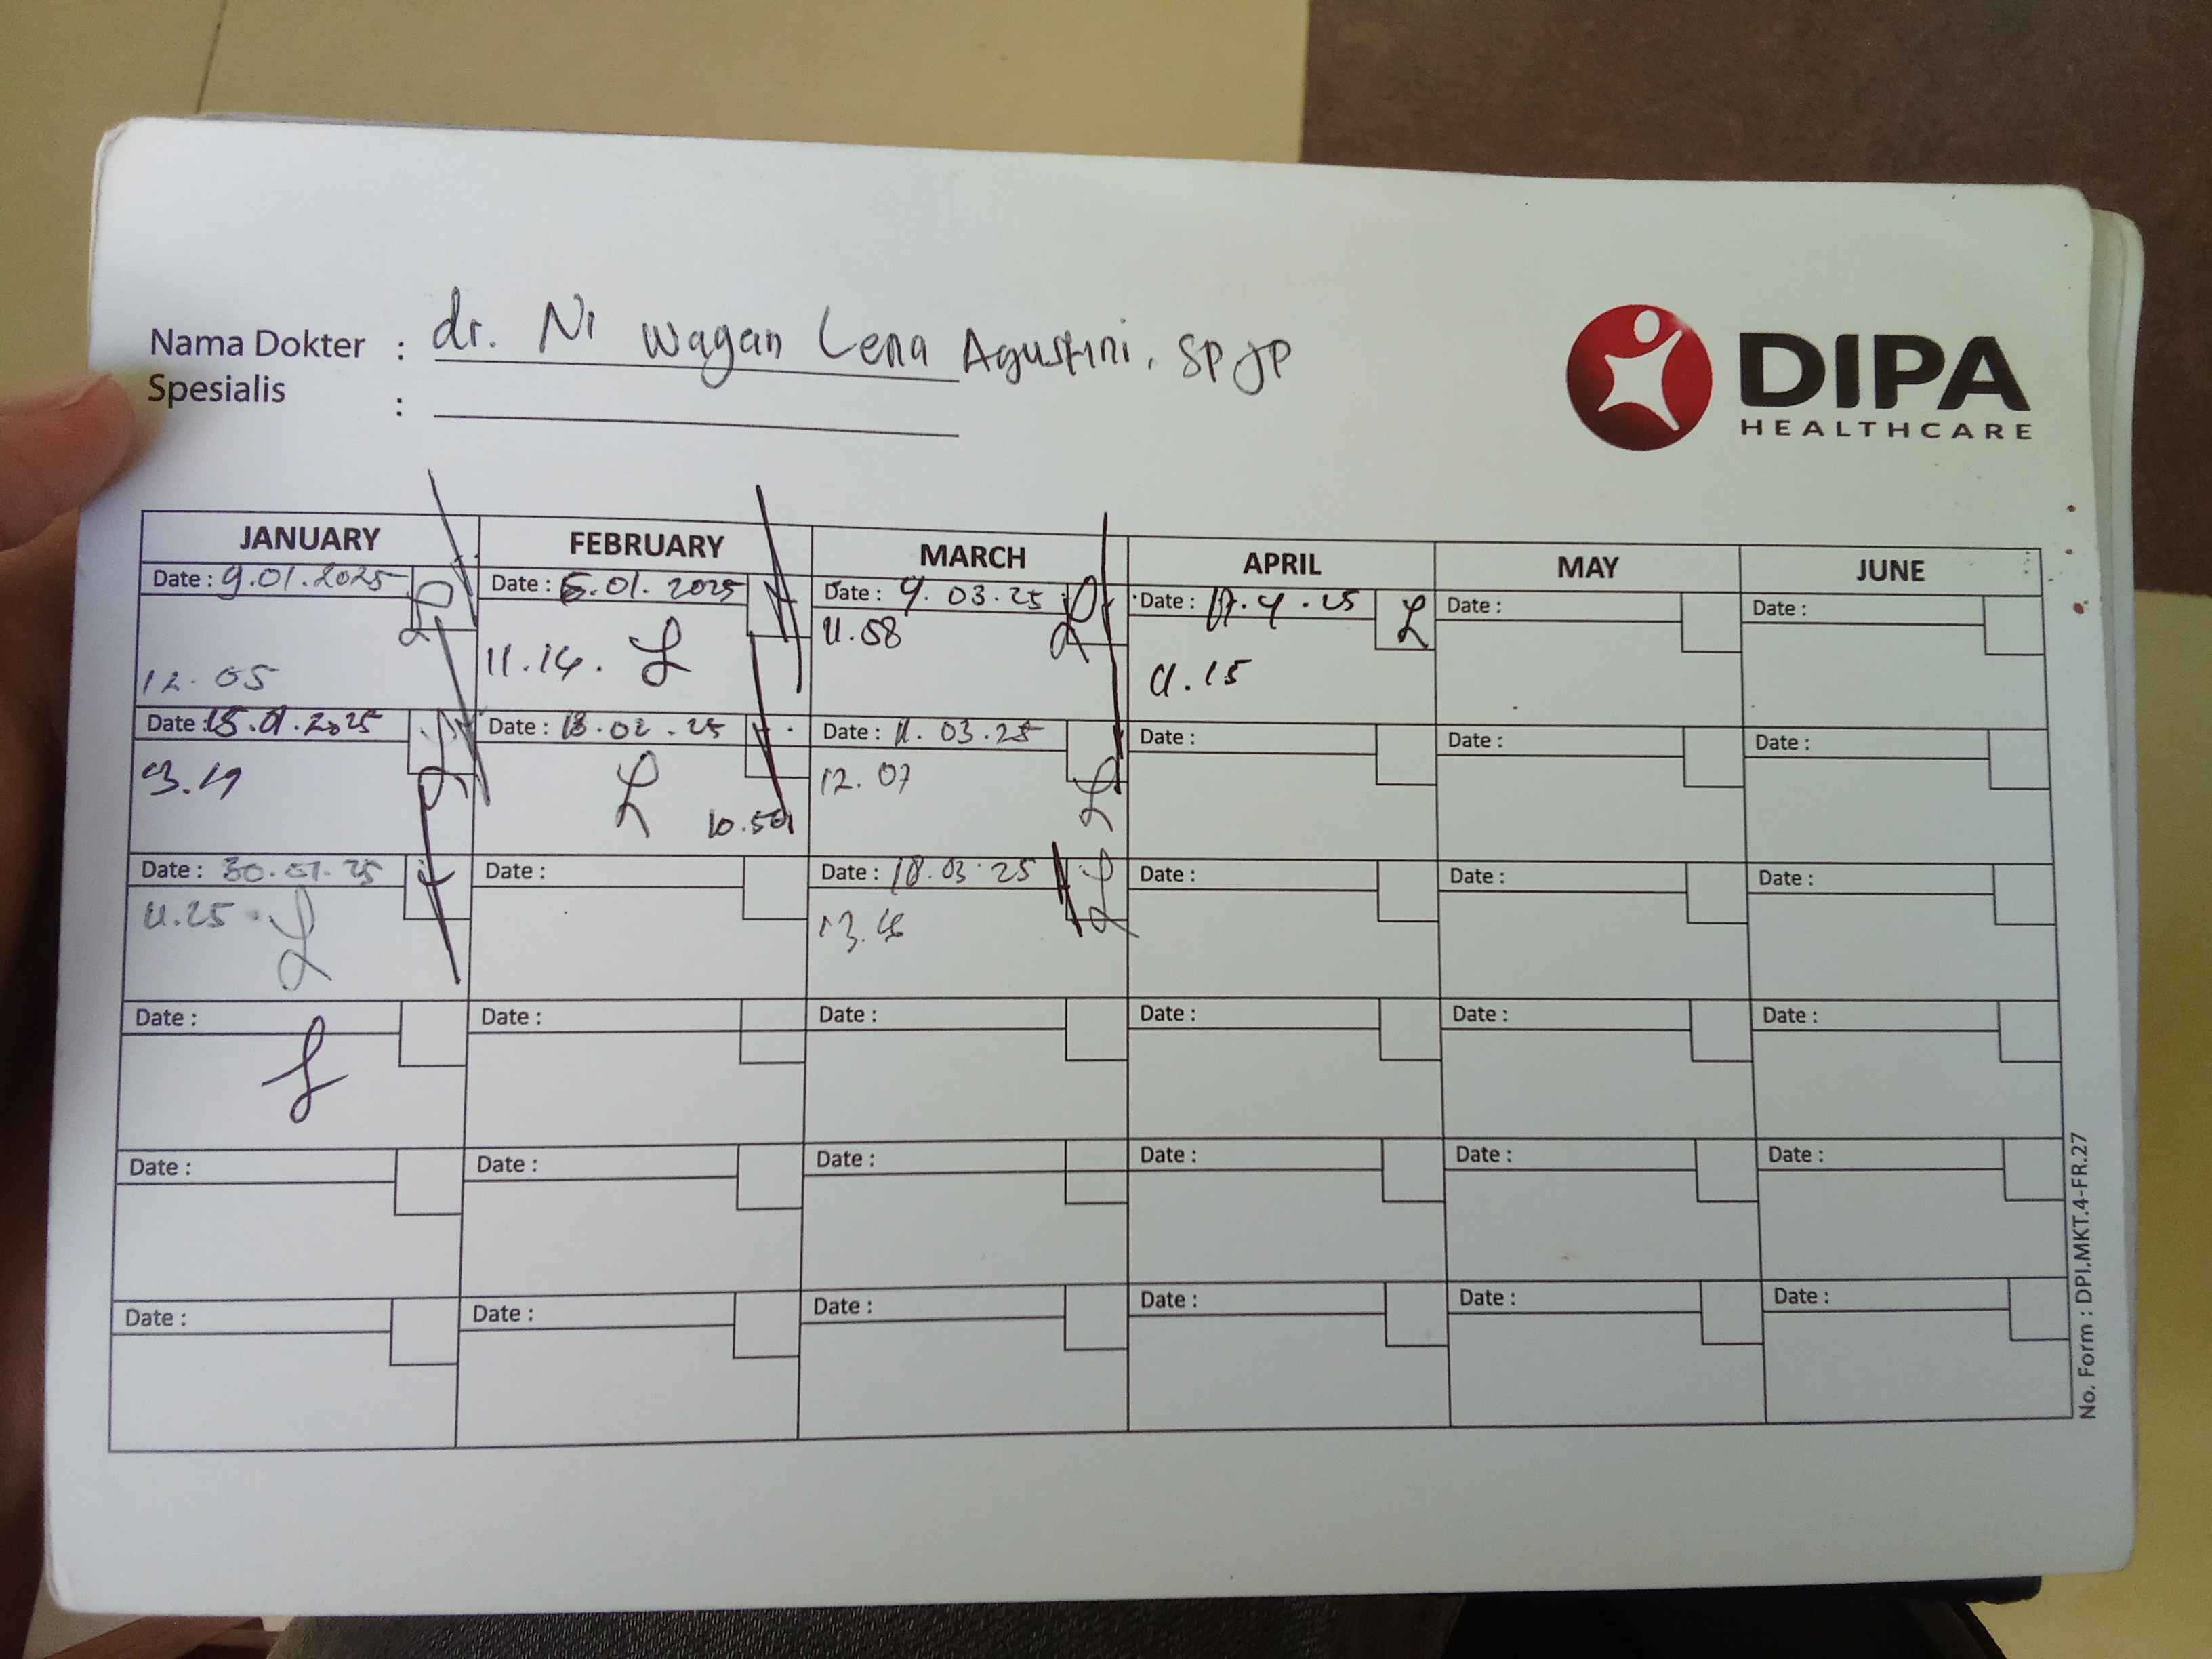 Nama Dokter : dr. Ni Wayan Lena Agustini, SpJP
Spesialis :
DIPA
HEALTHCARE
JANUARY FEBRUARY MARCH APRIL MAY JUNE
Date : 9.01.2025 Date : 5.01.2025 Date : 4.03.25 Date : 17.4.25 Date : Date :
12.05 11.14. 11.58 11.15
Date : 15.01.2025 Date : 18.02.25 Date : 11.03.25 Date : Date : Date :
10.50 12.07
Date : 30.01.25 Date : Date : 18.03.25 Date : Date : Date :
11.25
Date : Date : Date : Date : Date : Date :
Date : Date : Date : Date : Date : Date :
Date : Date : Date : Date : Date : Date :
No. Form : DPI.MKT.4-FR.27